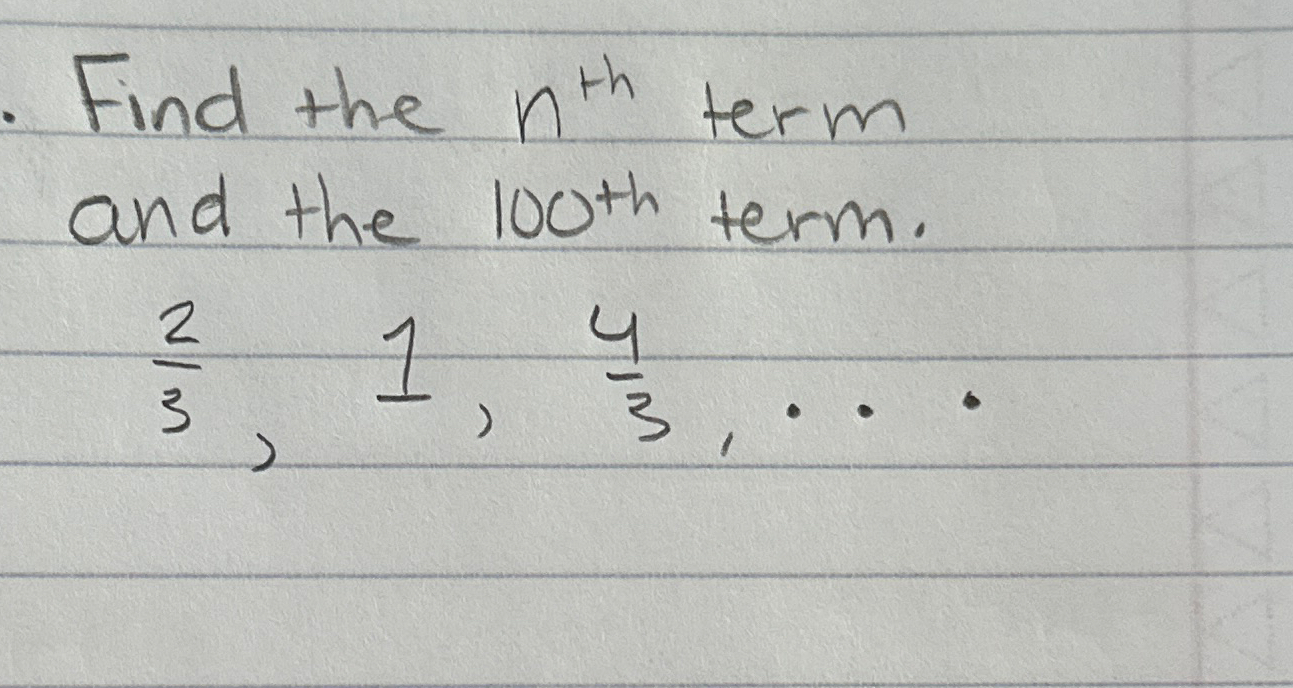 . Find the nth term
and the 100th term.
2/3, 1, 4/3, . . .